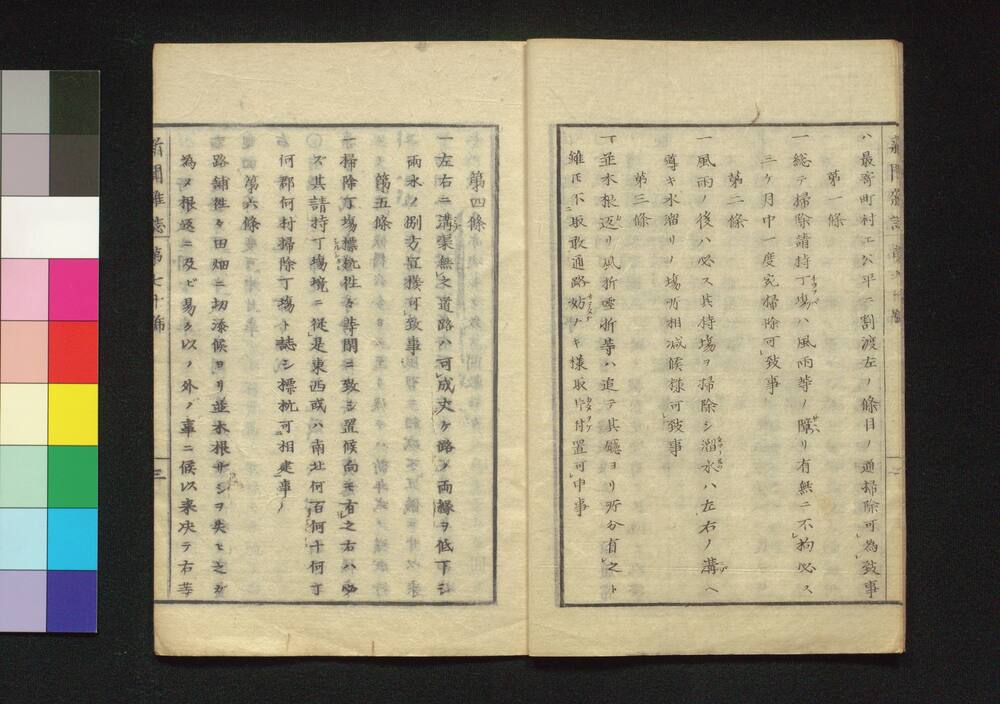 ハ最寄町村エ公平ニ割渡左ノ條目ノ通掃除可為致事
第一條
一総テ掃除請持丁場ハ風雨等ノ障リ有無ニ不拘必ス
三ケ月中一度宛掃除可致事
第二條
一風雨ノ後ハ必ス其持場ヲ掃除シ溜水ハ左右ノ溝ヘ
導キ水溜リノ場所相減候様可致事
第三條
一並木根返リ風折雪折等ハ追テ其廳ヨリ所分有之ト
雖𪜈不取敢通路妨ナキ様取片付置可申事
第四條
一左右ニ溝渠無之道路ハ可成丈ケ路ノ両縁ヲ低下シ
雨水ノ捌方宜様可致事
第五條
一掃除丁場標杭徃々等閑ニ致シ置候向モ有之右ハ必
ズ其請持丁場境ニ従是東西或ハ南北何百何十何丁
何郡何村掃除丁場ト誌シ標杭可相建事
第六條
一路鋪徃々田畑ニ切添候ヨリ並木根サシヲ失ヒ之カ
為メ根返ニ及ヒ易ク以ノ外ノ事ニ候以来决テ右等
新聞雑誌 第七十號 三